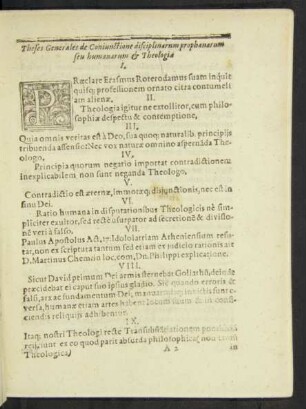 Theses Generales de Coniunctione disciplinarum prophanarum
seu humanarum & Theologiæ
I.
PRæclare Erasmus Roterodamus suam inquit
quisq; professionem ornato citra contumeli
am alienæ.
II.
Theologia igitur ne extollitor, cum philo-
sophiæ despectu & contemptione,
III.
Quia omnis veritas est à Deo, sua quoq; naturalib. principijs
tribuenda assensio: Nec vox naturæ omnino aspernāda Theo-
logo,
IV.
Principia quorum negatio importat contradictionem
inexplicabilem non sunt neganda Theologo.
V.
Contradictio est æternæ, immotæq; disjunctionis, nec est in
sinu Dei.
VI.
Ratio humana in disputationibus Theologicis nè sim-
pliciter exulto, sed rectè usurpator ad secretionē & divisio-
nē veri à falso.
VII.
Paulus Apostolus Act. 17. Idololatriam Atheniensium refu-
tat, non ex scriptura tantum sed etiam ex judicio rationis ait
D. Martinus Chemnō. loc, com, Dn. Philippi explicatione.
VIII.
Sicut David primum Dei armis sternebat Goliathū, deinde
præcidebat ei caput suo ipsius gladio. Sic quando erroris &
falsi, arx ac fundamentum Dei,
versa, humanæ etiam artes habent in
ciendis reliquijs adhibentur.
IX.
Itaq; nostri Theologi rectè Transubstantiationem
rejiciunt ex eo quod parit absurda philosophica (non
Theologica)
A 2
in